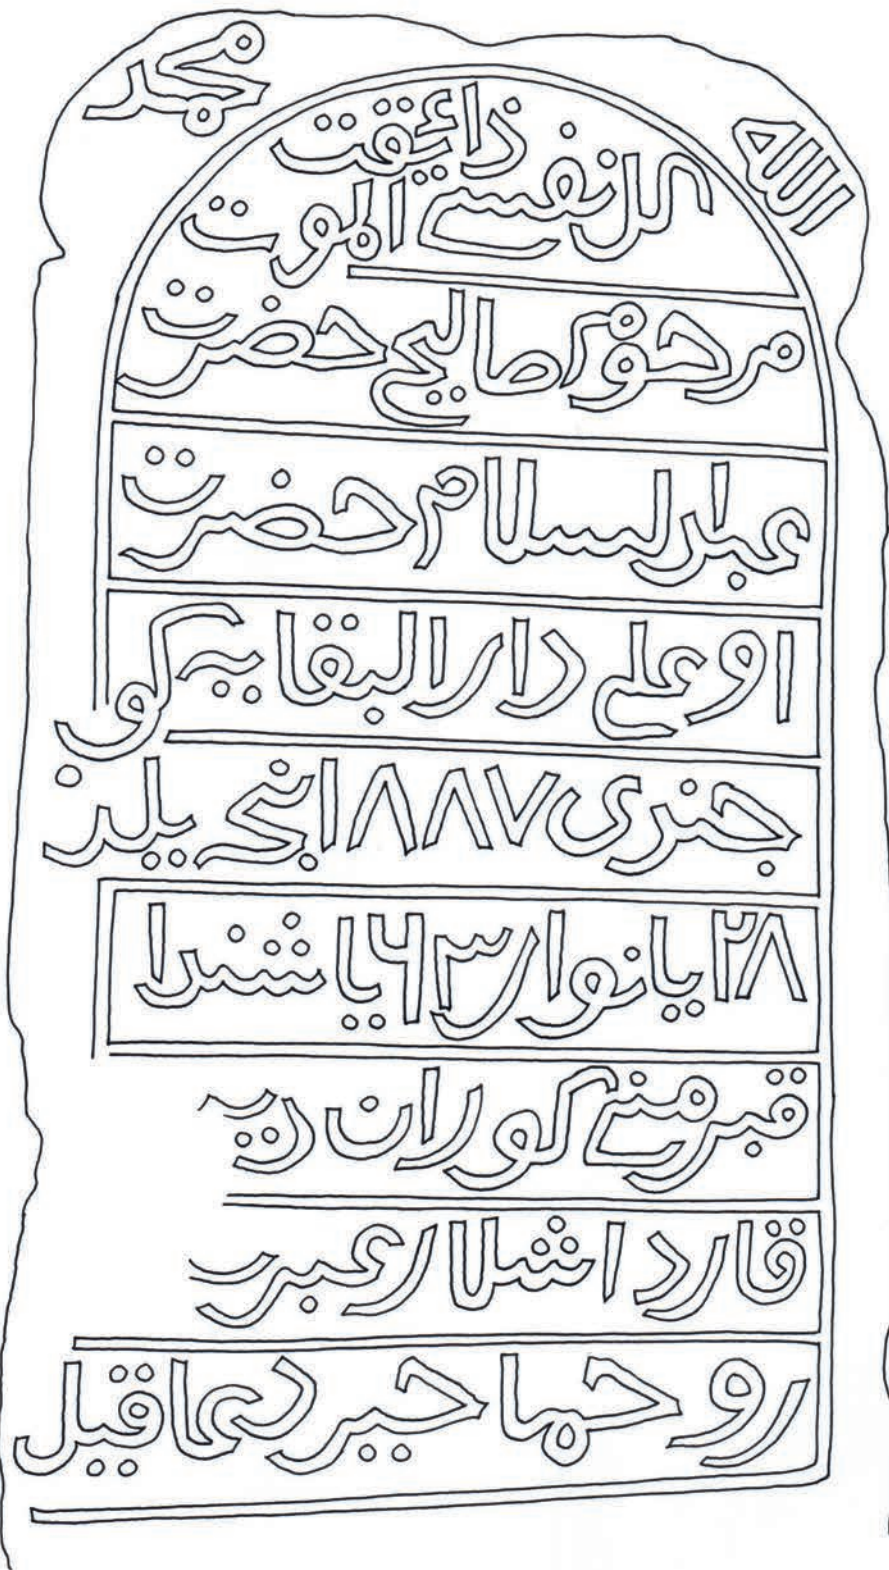 الله
محمد
كل نفس ذائقت الموت
مرحوم صاليح حضرت
عبدالسلام حضرت
اوعلی دار البقا يه كو
جنری ۱۸۸۷ انجی یلدن
۲۸ یانوار ۶۳ یاشندا
قبرمنی كوران
قارداشلار عبر
روحما خیر دعا قیل